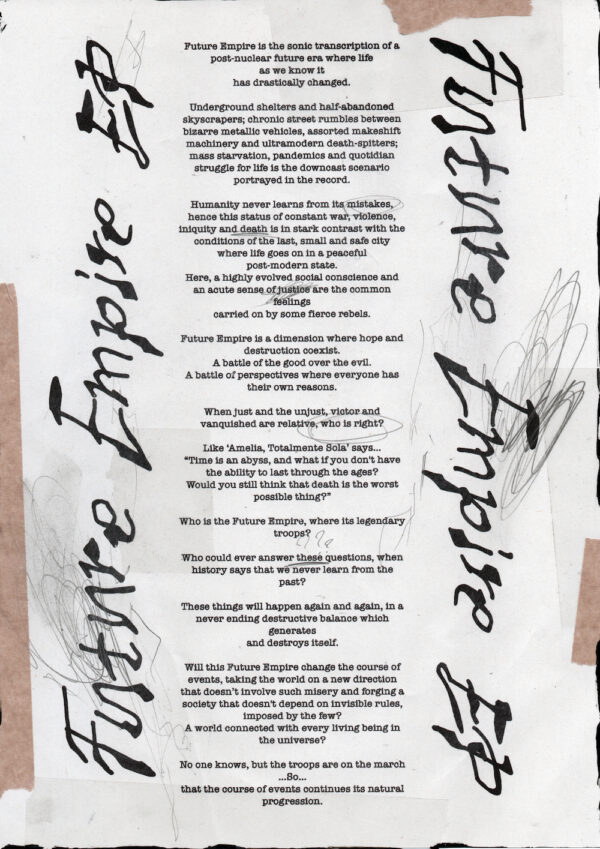 Future Empire EP
Future Empire is the sonic transcription of a
post-nuclear future era where life
as we know it
has drastically changed.
Underground shelters and half-abandoned
skyscrapers; chronic street rumbles between
bizarre metallic vehicles, assorted makeshift
machinery and ultramodern death-spitters;
mass starvation, pandemics and quotidian
struggle for life is the downcast scenario
portrayed in the record.
Humanity never learns from its mistakes,
hence this status of constant war, violence,
iniquity and death is in stark contrast with the
conditions of the last, small and safe city
where life goes on in a peaceful
post-modern state.
Here, a highly evolved social conscience and
an acute sense of justice are the common
feelings
carried on by some fierce rebels.
Future Empire is a dimension where hope and
destruction coexist.
A battle of the good over the evil.
A battle of perspectives where everyone has
their own reasons.
When just and the unjust, victor and
vanquished are relative, who is right?
Like ‘Amelia, Totalmente Sola’ says...
“Time is an abyss, and what if you don't have
the ability to last through the ages?
Would you still think that death is the worst
possible thing?”
Who is the Future Empire, where its legendary
troops?
Who could ever answer these questions, when
history says that we never learn from the
past?
These things will happen again and again, in a
never ending destructive balance which
generates
and destroys itself.
Will this Future Empire change the course of
events, taking the world on a new direction
that doesn't involve such misery and forging a
society that doesn't depend on invisible rules,
imposed by the few?
A world connected with every living being in
the universe?
No one knows, but the troops are on the march
...So...
that the course of events continues its natural
progression.
Future Empire EP